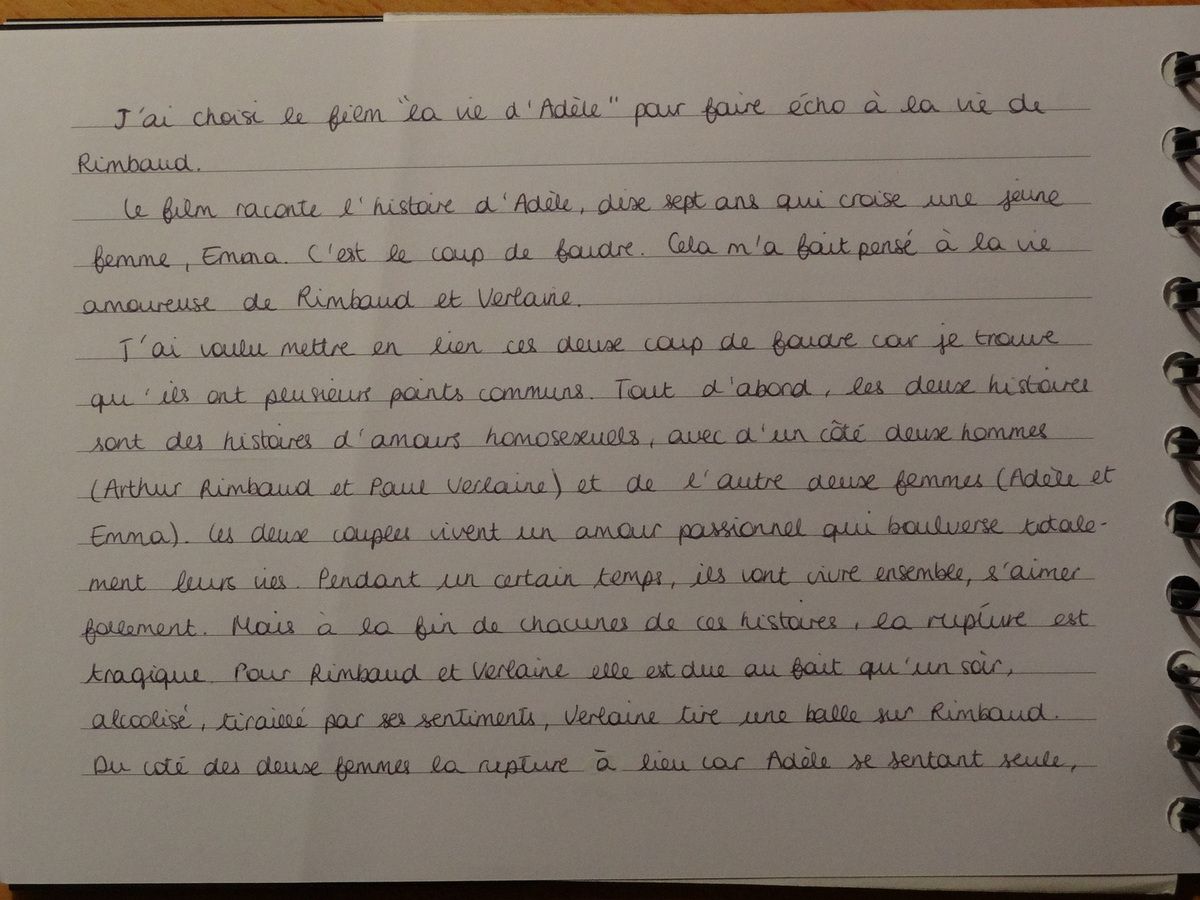 J'ai choisi le film "la vie d'Adèle" pour faire écho à la vie de
Rimbaud.
Le film raconte l'histoire d'Adèle, dix sept ans qui croise une jeune
femme, Emma. C'est le coup de foudre. Cela m'a fait pensé à la vie
amoureuse de Rimbaud et Verlaine.
J'ai voulu mettre en lien ces deux coup de foudre car je trouve
qu'ils ont plusieurs points communs. Tout d'abord, les deux histoires
sont des histoires d'amours homosexuels, avec d'un côté deux hommes
(Arthur Rimbaud et Paul Verlaine) et de l'autre deux femmes (Adèle et
Emma). Les deux couples vivent un amour passionnel qui boulverse totale-
ment leurs vies. Pendant un certain temps, ils vont vivre ensemble, s'aimer
follement. Mais à la fin de chacunes de ces histoires, la rupture est
tragique. Pour Rimbaud et Verlaine elle est due au fait qu'un soir,
alcoolisé, tiraillé par ses sentiments, Verlaine tire une balle sur Rimbaud.
Du coté des deux femmes la rupture à lieu car Adèle se sentant seule,